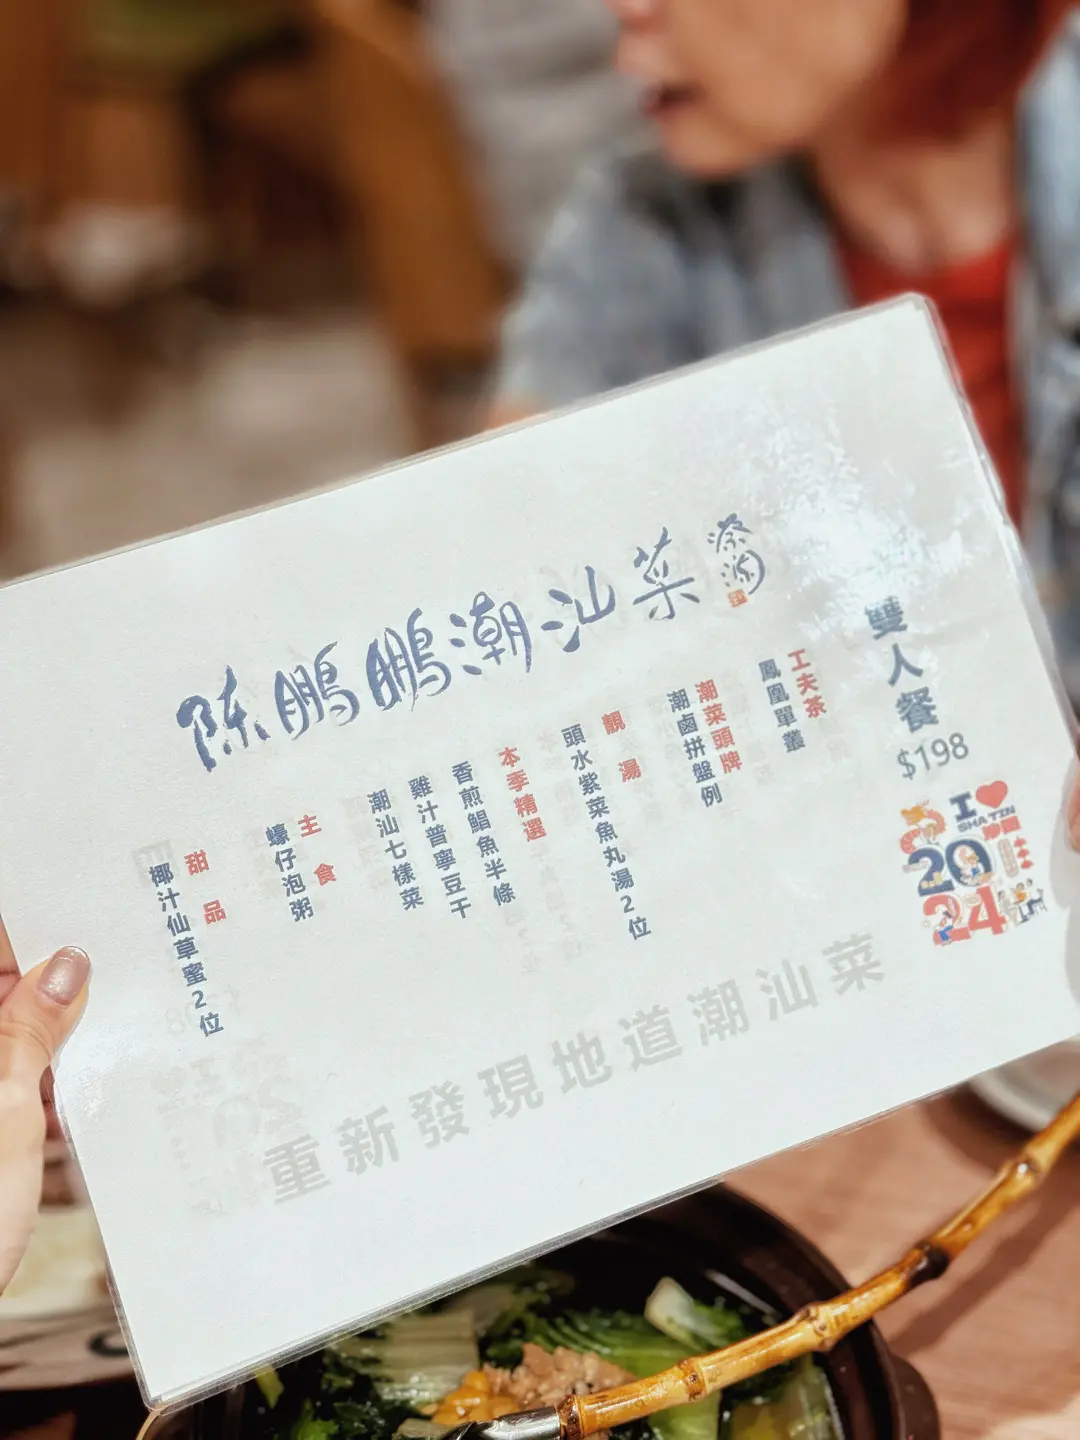 陈鵬鵬潮汕菜
蔡瀾
雙人餐
$198
I ❤
SHA TIN
2024
工夫茶
鳳凰單叢
潮菜頭牌
潮鹵拼盤例
靚湯
頭水紫菜魚丸湯2位
本季精選
香煎鯧魚半條
雞汁普寧豆干
潮汕七樣菜
主食
蠔仔泡粥
甜品
椰汁仙草蜜2位
重新發現地道潮汕菜